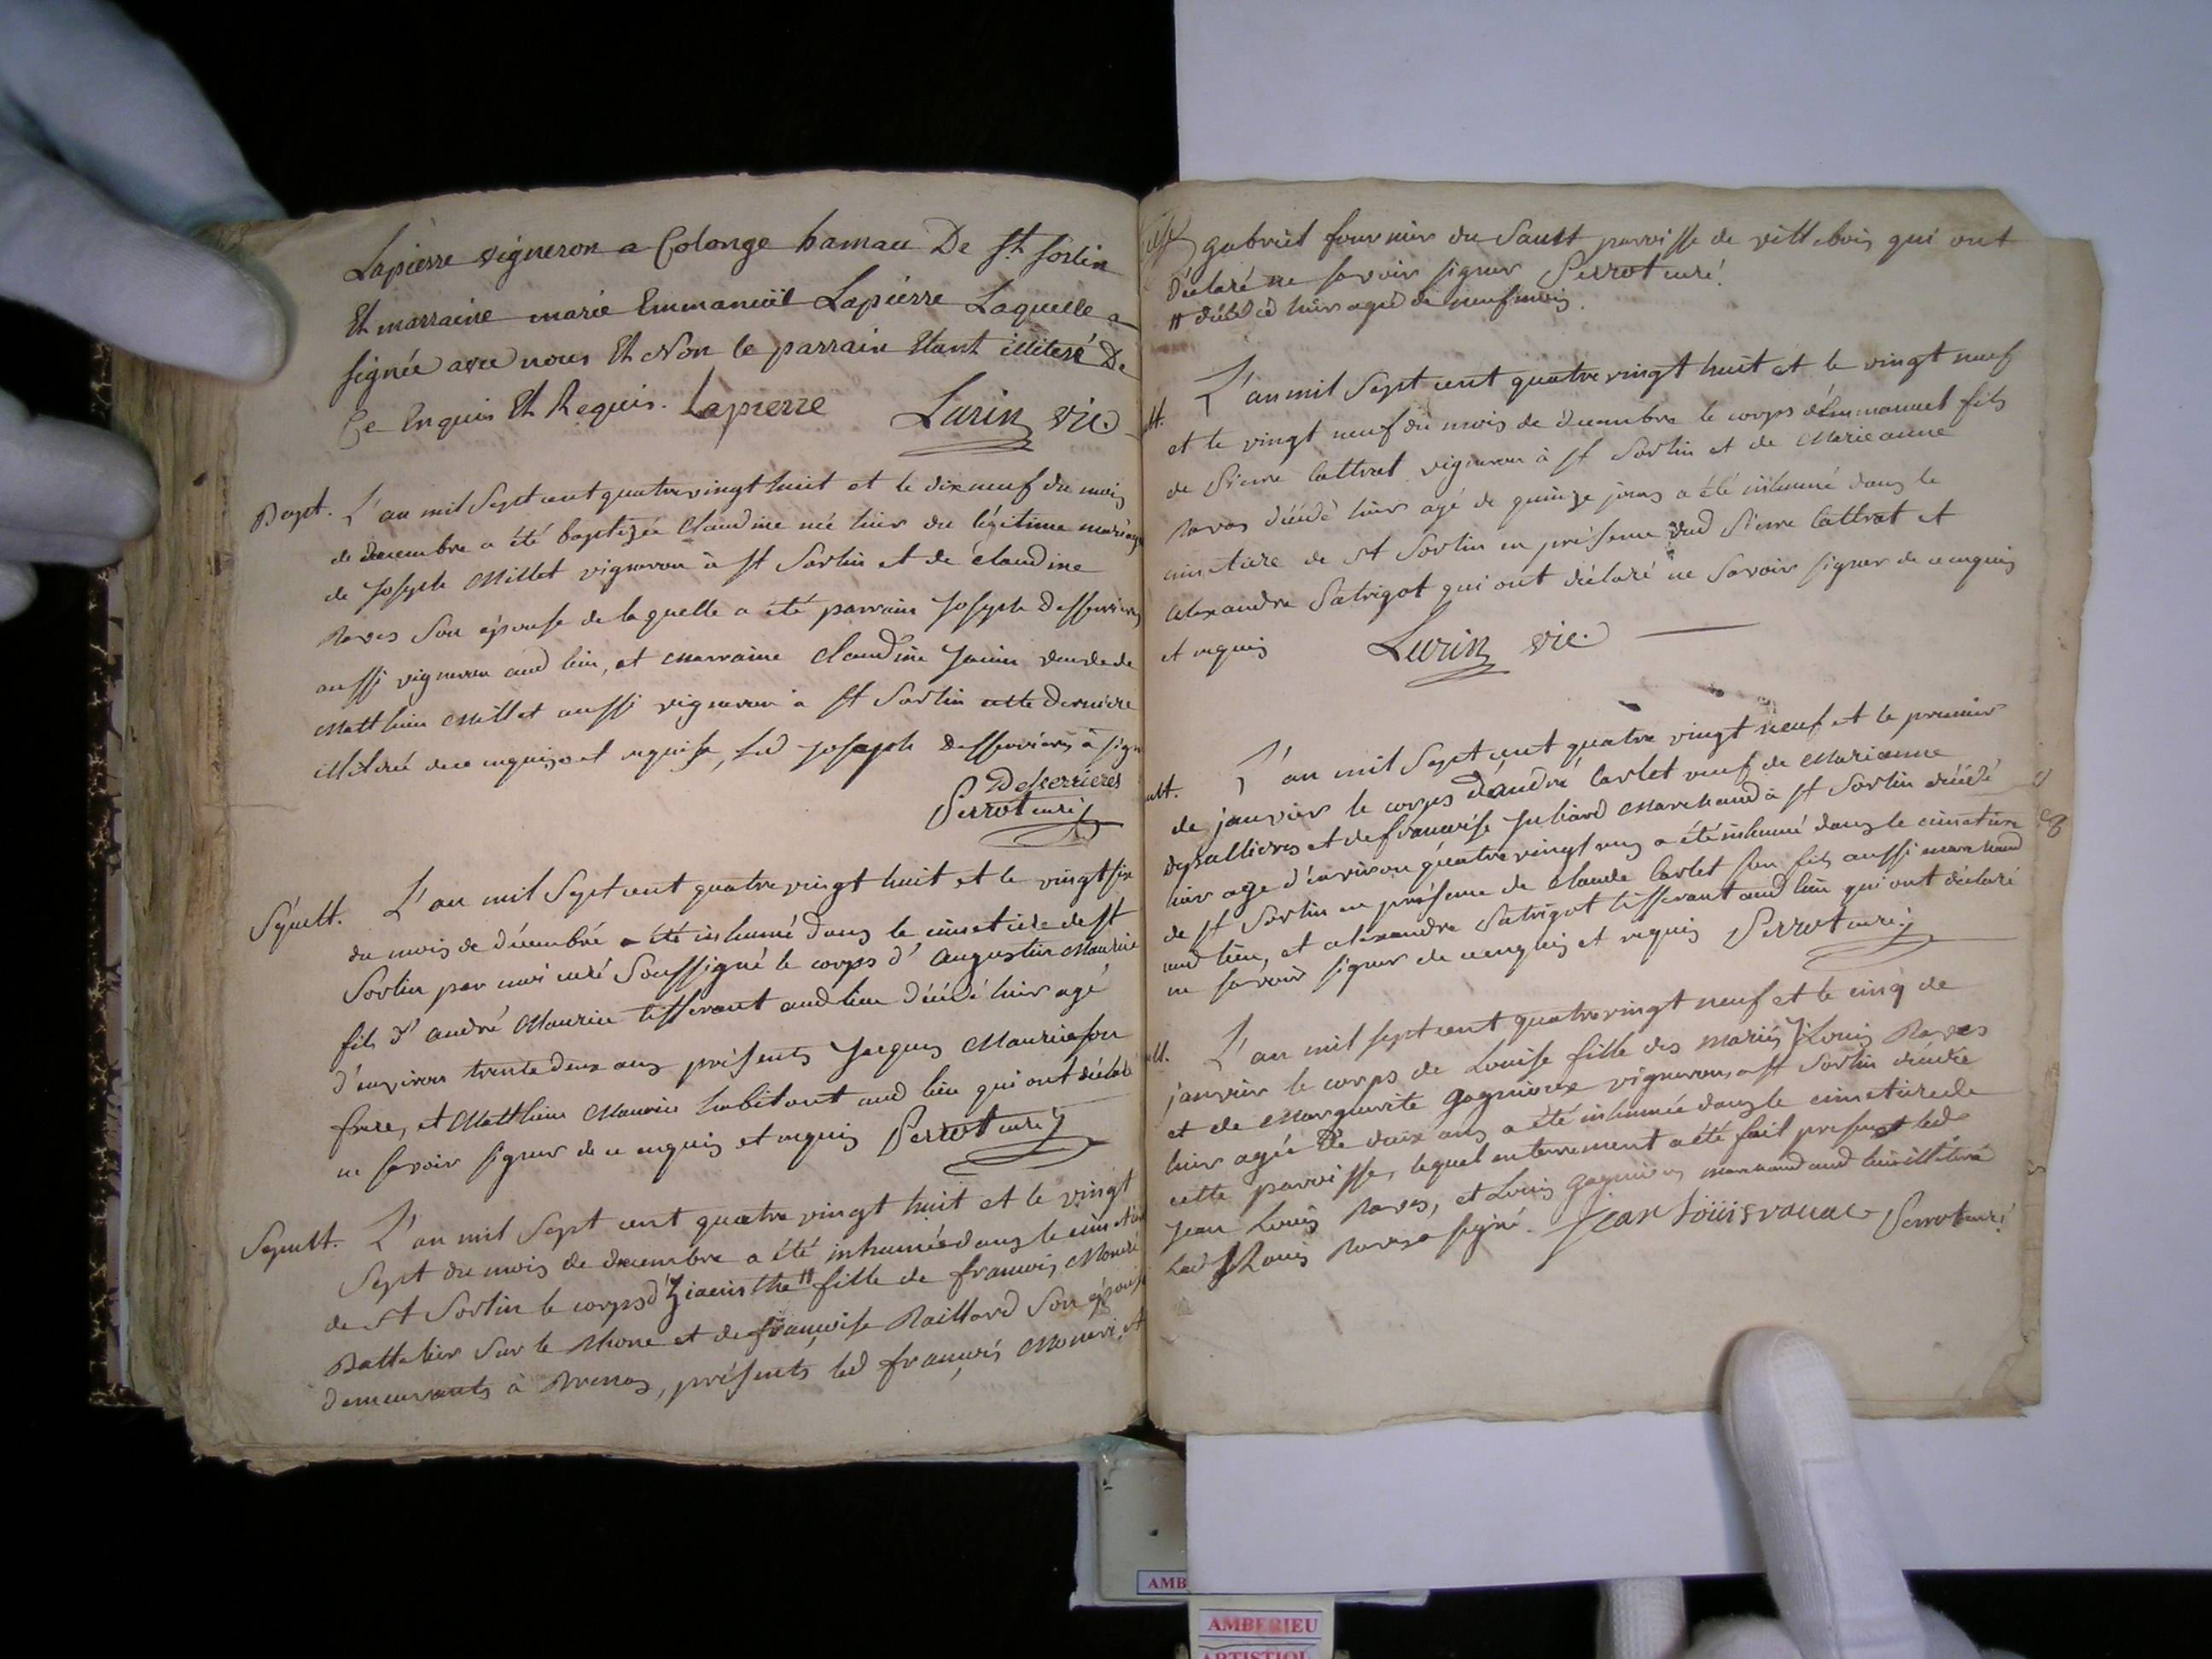 Lapierre vigneron a Colonge hamau De St. sorlin
Et marraine marie Emmanuël Lapierre Laquelle a
signée avec nous Et Non le parrain Etant illiteré De
Ce Enquis Et Requis. Lapierre Lurin vic
Bapt. L'an mil Sept cent quatrevingt huit et le dixneuf du mois
de decembre a été baptizée Claudine née hier du légitime mariage
de Joseph Millet vigneron à st Sorlin et de Claudine
Raves Son épouse de laquelle a été parrain Joseph Desserrieres
aussi vigneron aud lieu, et marraine Claudine Janin veuve de
Matthieu Millet aussi vigneron à st Sorlin cette derniere
illitérée de ce enquise et requise, led Joseph Desserrieres à signé
Desserrieres
Perrot curé
Sépult. L'an mil Sept cent quatre vingt huit et le vingt six
du mois de décembre a été inhumé dans le cimetiere de st
Sorlin par moi curé Soussigné le corps d'Augustin Maurice
fils d'andré Maurice tisserant aud lieu décédé hier agé
d'environ trente deux ans présents Jacques Maurice son
frere, et Matthieu Maurice habitant aud lieu qui ont déclaré
ne savoir signer de ce enquis et requis Perrot curé
Sépult. L'an mil Sept cent quatre vingt huit et le vingt
Sept du mois de decembre a été inhumée dans le cimetiere
de st Sorlin le corps d'hiacinthe # fille de francois
Battelier Sur le Rhone et de françoise Raillard Son épouse
demeurants à, présents led françois et
gabriel fournier du Sault parroisse de villebois qui ont
déclaré ne savoir signer Perrot curé
# décédée hier agée de neuf mois.
L'an mil Sept cent quatre vingt huit et le vingt neuf
et le vingt neuf du mois de decembre le corps d'Emmanuel fils
de Pierre Cattrat vigneron à st Sorlin et de Marieanne
Raves décédé hier agé de quinze jours a été inhumé dans le
cimetiere de st Sorlin en présence dud Pierre Cattrat et
alexandre Patrigot qui ont déclaré ne Savoir signer de ce enquis
et requis Lurin vic
L'an mil Sept cent quatre vingt neuf et le premier
de janvier le corps d'andré Carlet veuf de Marianne
depallieres et de françoise Juliard Marchand à st Sorlin décédé
hier agé d'environ quatre vingt ans a été inhumé dans le cimetiere
de st Sorlin en présence de Claude Carlet Son fils aussi marchand
aud lieu, et alexandre Patrigot tisserant aud lieu qui ont déclaré
ne savoir signer de ce enquis et requis Perrot curé
L'an mil sept cent quatre vingt neuf et le cinq de
janvier le corps de Louise fille des mariés Louis Raves
et de Marguerite gagnieux vignerons à st Sorlin décédée
hier agée de deux ans a été inhumée dans le cimetiere de
cette parroisse, lequel enterrement a été fait présent led
Jean Louis Raves, et Louis gagnieux marchand aud lieu illitéré
Led Louis Raves a signé. Jean Loüis ravae Perrot curé
AMB
AMBERIEU
ARTISTIQU